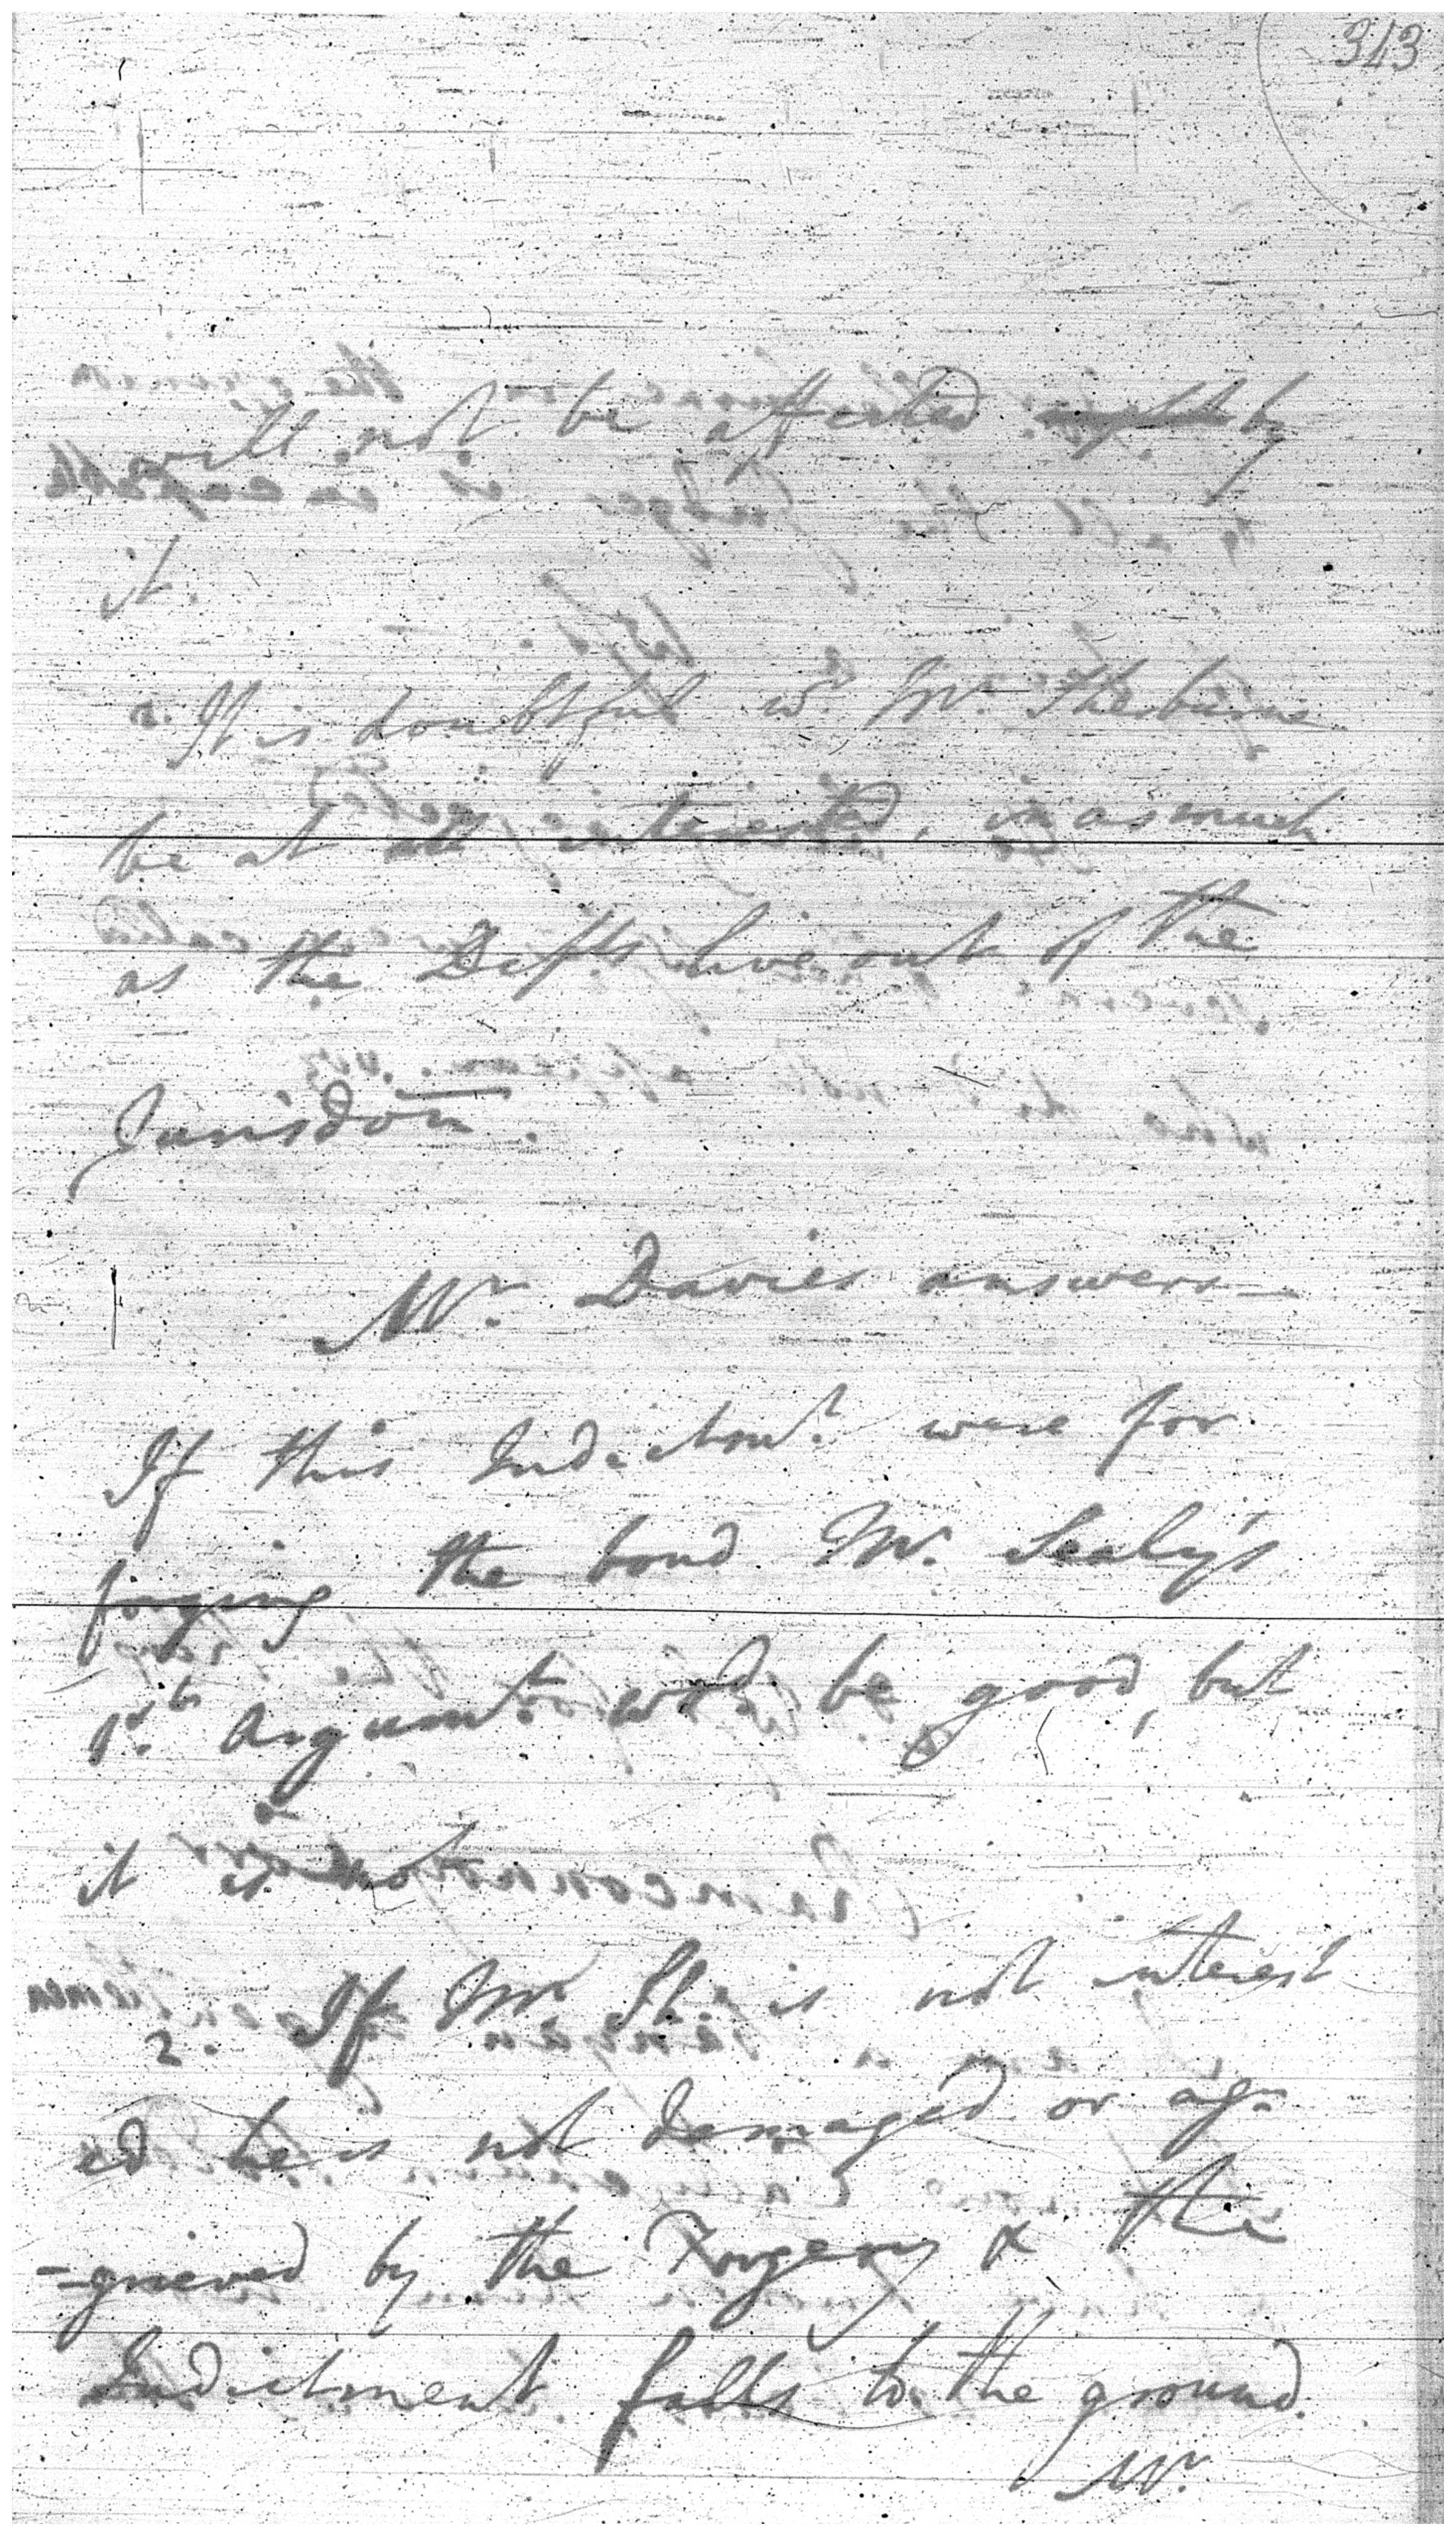 343
will not be affected by
it.
2. It is doubtful wr. Mr. Sherburne
be at all interested, in as much
as the Defts live out of the
Jurisdōn.
Mr. Davies answers —
If this Indictmt. were for
forging the bond Mr. Sealy's
1st. Argumt. wod. be good, but
it is not
2. If Mr Sh. is not interest
ed he is not damaged or ag-
-grieved by the Forgery & the
Indictment falls to the ground.
Mr.